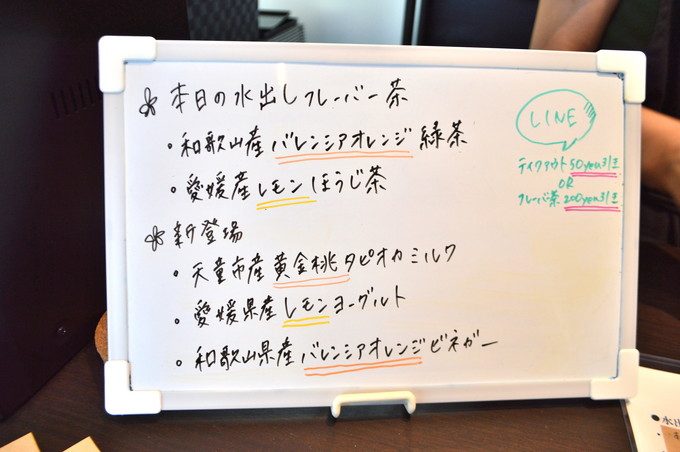 本日の水出しフレーバー茶
・和歌山産バレンシアオレンジ緑茶
・愛媛産レモンほうじ茶
新登場
・天童市産黄金桃タピオカミルク
・愛媛県産レモンヨーグルト
・和歌山県産バレンシアオレンジビネガー
LINE
テイクアウト50yen引き
OR
フレーバ茶200yen引き